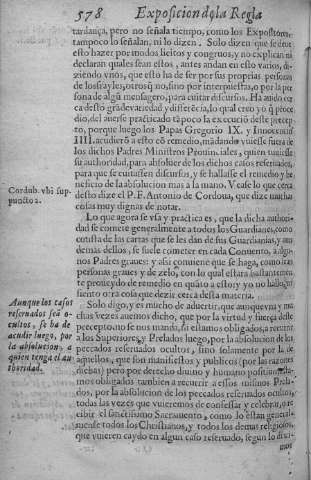 578 Exposicion dela Regla
tardança, pero no señala tiempo, como los Expositores
tampoco lo señalan, ni lo dizen, Solo dizen que se deue
esto hazer por modos licitos y congruos, y no explican ni
declaran quales sean estos, antes andan en esto varios, di-
ziendo vnos, que esto ha de ser por sus propias personas
de los frayles, otros q̃ no, sino por interpuestas, o por la per
sona de algũ mensagero, para euitar discursos. Ha auido cer
ca desto grãde variedad y differẽcia, lo qual creo yo q̃ proce
dio, del auerse practicado tãpoco la execuciõ deste precep-
to, porque luego los Papas Gregorio IX. y Innocencio
IIII. acudierõ a esto cõ remedio, mãdando vuiesse fuera de
los dichos Padres Ministros Prouinciales, quien tuuiesse
su authoridad, para absoluer de los dichos casos reseruados,
para que se euitassen discursos, y se hallasse el remedio y be
neficio de la absolucion mas a la mano. Vease lo que cerca
desto dize el P. F. Antonio de Cordoua, que dize muchas
cosas muy dignas de notar.
Cordub. vbi sup-
puncto 2.
Lo que agora se vsa y practica es, que la dicha authori-
dad se comete generalmente a todos los Guardianes, como
consta de las cartas que se les dan de sus Guardianias, y aun
demas dellos, se suele cometer en cada Conuento, a algu-
nos Padres graues: y assi conuiene que se haga, como sean
personas graues y de zelo, con lo qual estara bastantemen-
te proueydo de remedio en quãto a esto: y yo no hallo, ni
siento otra cosa que dezir cerca desta materia.
Solo digo, y es mucho de aduertir, que aunque vna y mu
chas vezes auemos dicho, que por la virtud y fuerça deste
precepto, no se nos manda, ni estamos obligados, a recurrir
a los Superiores, y Prelados luego, por la absolucion de los
peccados reseruados ocultos, sino solamente por la de
aquellos, que son manifiestos y publicos (por las razones
dichas) pero por derecho diuino y humano positiuo, esta-
mos obligados tambien a recurrir a essos mismos Prela-
dos, por la absolucion de los peccados reseruados ocultos,
todas las vezes que vuieremos de confessar y celebrar, o re
cibir el Sanctissimo Sacramento, como lo estan general-
mente todos los Christianos, y todos los demas religiosos,
que vuieren caydo en algun caso reseruado, segun lo diui-
Aunque los casos
reseruados seã o-
cultos, se ha de
acudir luego, por
la absolucion, a
quien tenga el au
thoridad.